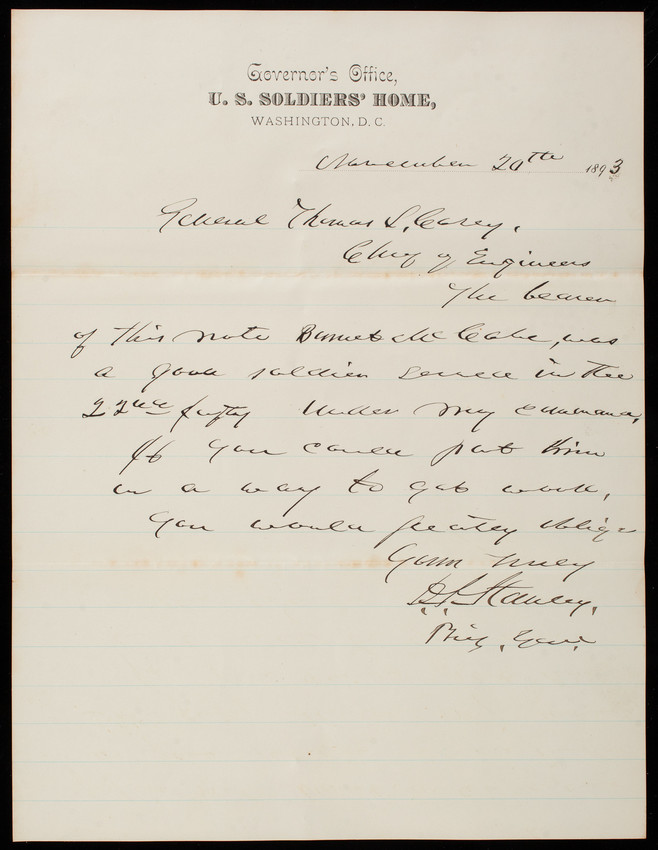 Governor's Office,
U. S. SOLDIERS' HOME,
WASHINGTON, D. C.
November 20th 1893
General Thomas L. Casey,
Chief of Engineers
The bearer
of this note McCabe, was
a good soldier served in the
22nd Infty under my command,
If you could put him
in a way to get work,
you would greatly oblige
Yours truly
D. S. Stanley,
Brig. Genl.